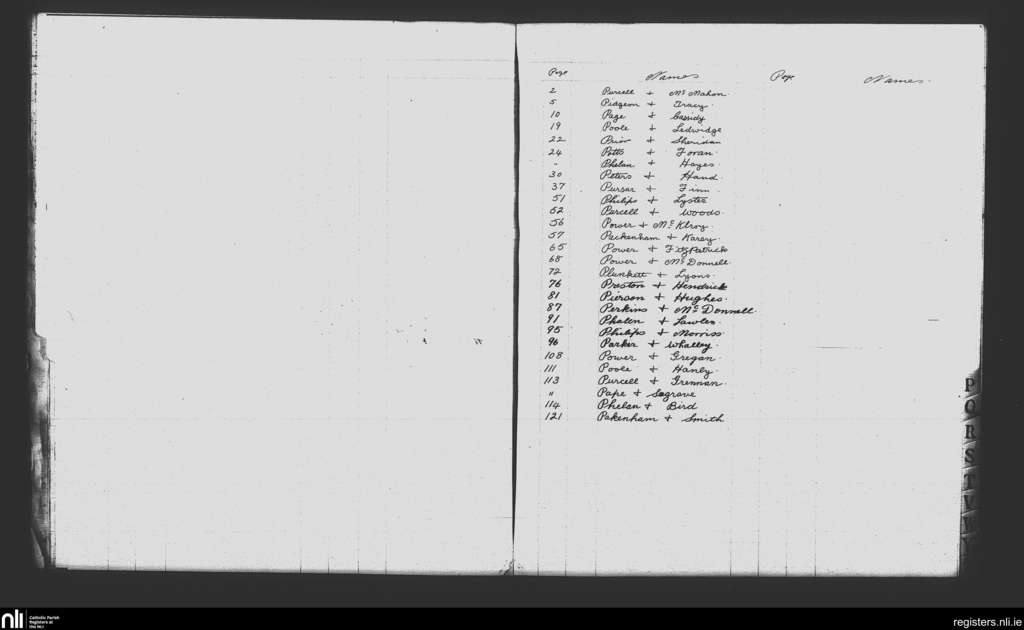 Page Names Page Names.
2 Purcell + Mc Mahon.
5 Pidgeon + Tracy.
10 Page + Cassidy
19 Poole + Ledwidge
22 Prior + Sheridan
24 Potts + Foran.
" Phelan + Hayes.
30 Peters + Hand.
37 Pursar + Finn.
51 Philips + Lyster
52 Purcell + Woods.
56 Power + Mc Klroy.
57 Packenham + Karey.
65 Power + Fitzpatrick
68 Power + Mc Donnell.
72 Plunkett + Lyons.
76 Preston + Hendrick
81 Pierson + Hughes.
87 Perkins + Mc Donnell.
91 Phalen + Lawler.
95 Philips + Morriss.
96 Parker + Whalley.
108 Power + Gregan.
111 Poole + Hanly.
113 Purcell + Grennan.
" Pape + Sagrave
114 Phelan + Bird
121 Pakenham + Smith
P
Q
R
S
T
V
W
Y
nli Catholic Parish
Registers at
the NLI
registers.nli.ie